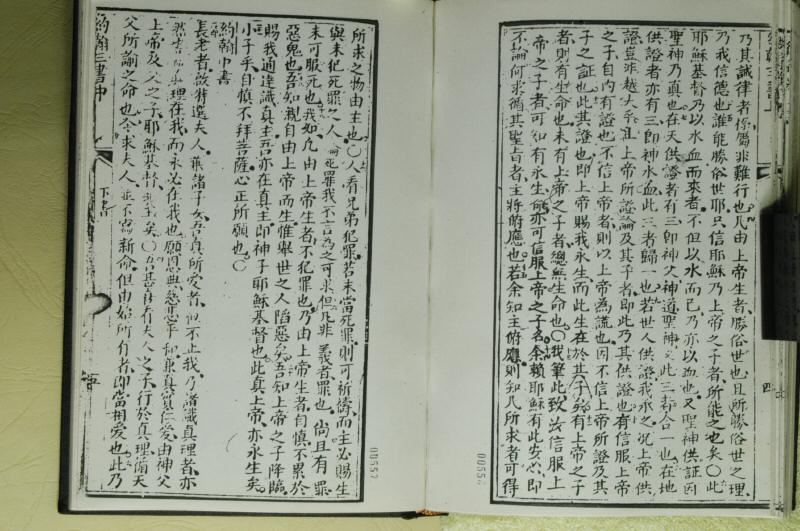 乃其誡律者係屬非難行也凡由上帝生者勝俗世也且所勝俗世之理
乃我信德也誰能勝俗世耶只信耶穌乃上帝之子者所能之也矣〇此
耶穌基督乃以水血而來者不但以水而已乃亦以血也又聖神供証因
聖神乃真也在天供證者有三即神父神道聖神又此三者合一也在地
供證者亦有三即神水血此三者歸一也若世人供證我承之况上帝供
證豈非越大乎上帝所證論及其子者即此乃其供證也有信服上帝
之子自内有證也不信上帝者則以上帝為謊也因不信上帝所證及其
子之証也此其證也即上帝賜我永生而此生在於其子有上帝之子
者則有生命也未有上帝之子者總無生命也〇我筆此致汝信服上
帝之子者可知有永生亦可信服上帝之子名余賴耶穌有此安心即
不論何求循其聖旨者主將俯應也若余知主俯應則知凡所求者可得
所求之物由主也〇人看兄弟犯罪若未當死罪則可祈禱而主必賜生
與未犯死罪之人死罪我不言為之可求但凡非義者罪也尚且有罪
未可服死也我知凡由上帝生者不犯罪也乃由上帝生者自慎不累於
惡鬼也吾知親自由上帝而生惟舉世之人陷惡矣吾知上帝之子降臨
賜我通達識真主吾亦在真主即神子耶穌基督也此真上帝亦永生矣
小子乎自慎不拜菩薩心正所願也〇
約翰中書
長老者致特選夫人兼諸子女吾真所愛者但不止我乃諸識真理者亦
然理在我而永必在我也願恩典慈悲平和兼真實仁愛由神父
上帝及父之子耶穌基督矣〇吾甚有夫人之子行於真理循天
父所諭之命也今求夫人並不寫新命但由始所有者即當相愛也此乃
約翰三書中
下書
00557